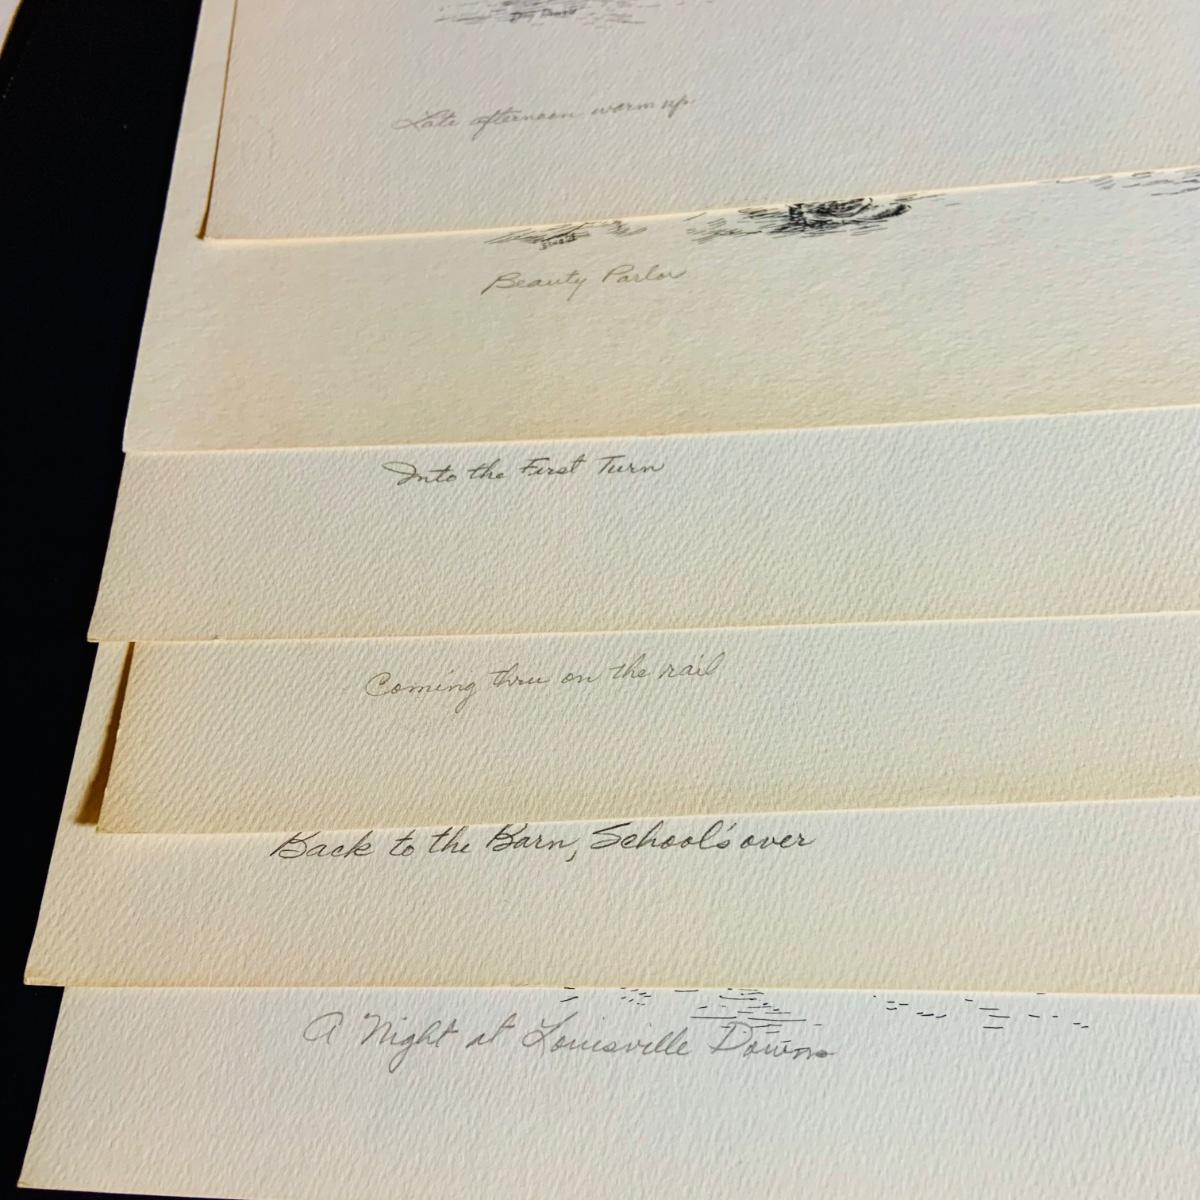 Late afternoon warm up
Beauty Parlor
Into the First Turn
Coming thru on the rail
Back to the Barn, School's over
A Night at Louisville Downs